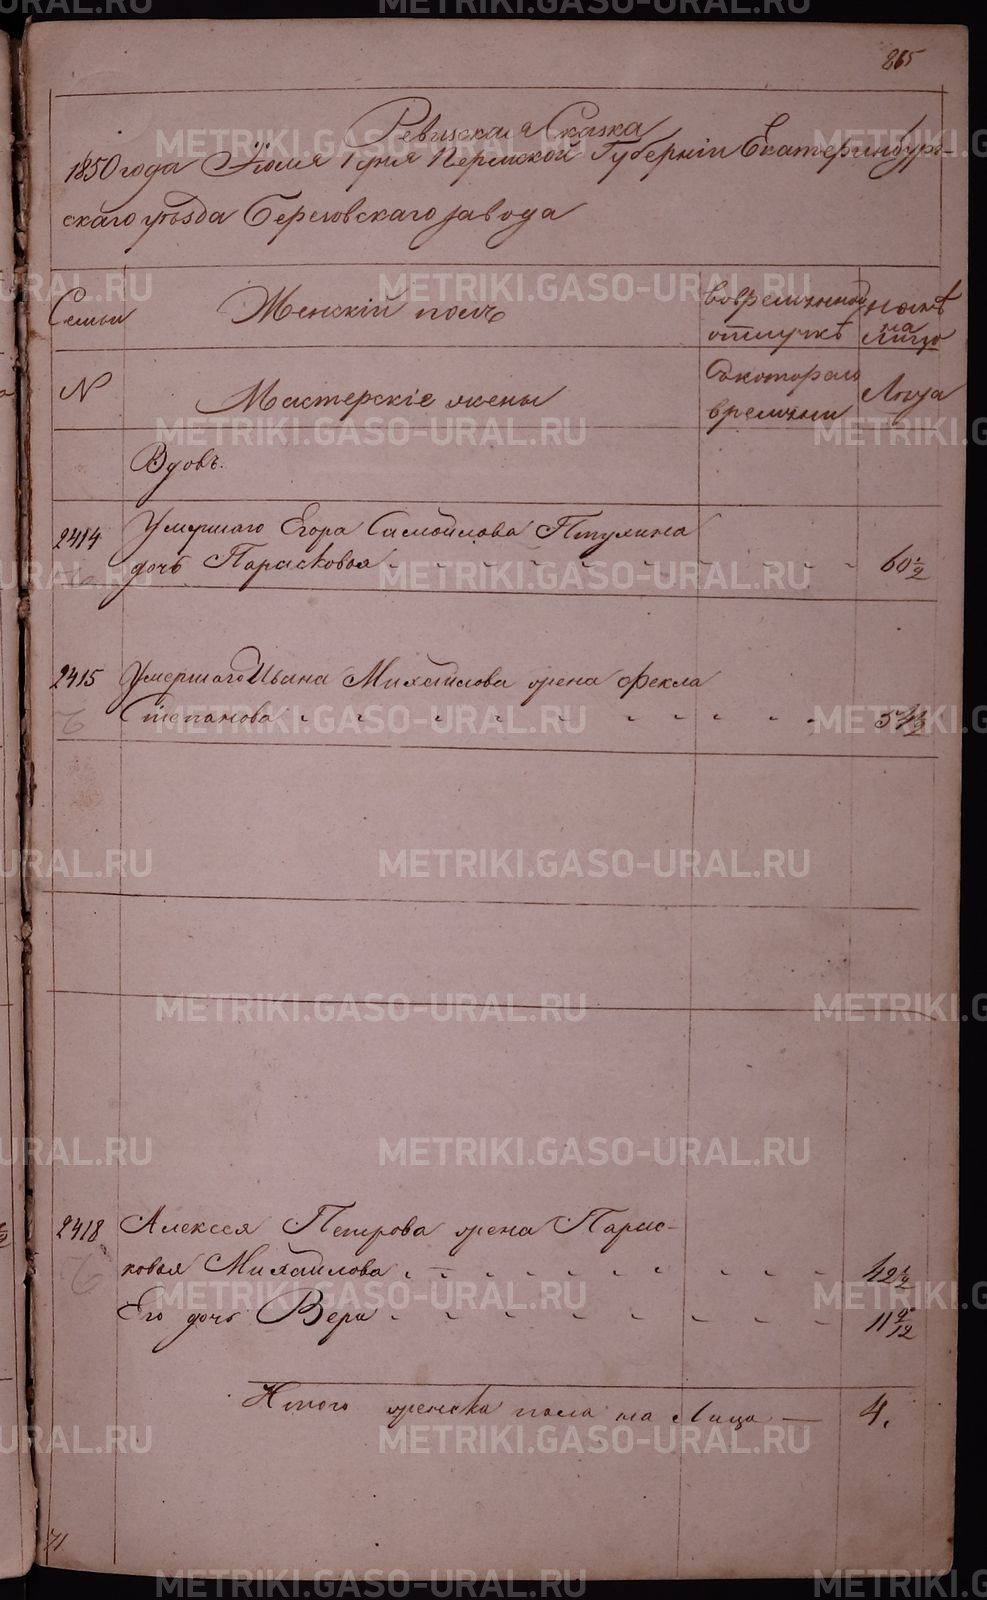 865
Ревизская Сказка
1850 года Июля 1 дня Пермской Губернiи Екатеринбург-
скаго уѣзда Березовскаго завода
Семьи
Женскiй полъ
во временной отлучкѣ
нынѣ на лицо
N
Мастерскiе жены
съ котораго времени
Лѣта
Вдовъ.
2414 Умершаго Егора Самойлова
дочь Парасковья 60 1/2
2415 Умершаго Ивана Михайлова жена Фекла
Степанова 54 1/2
2418 Алексея Петрова жена Парас-
ковья Михайлова 42 1/2
Его дочь Вера 11 9/12
Итого женска пола на Лицо — 4.
71
METRIKI.GASO-URAL.RU